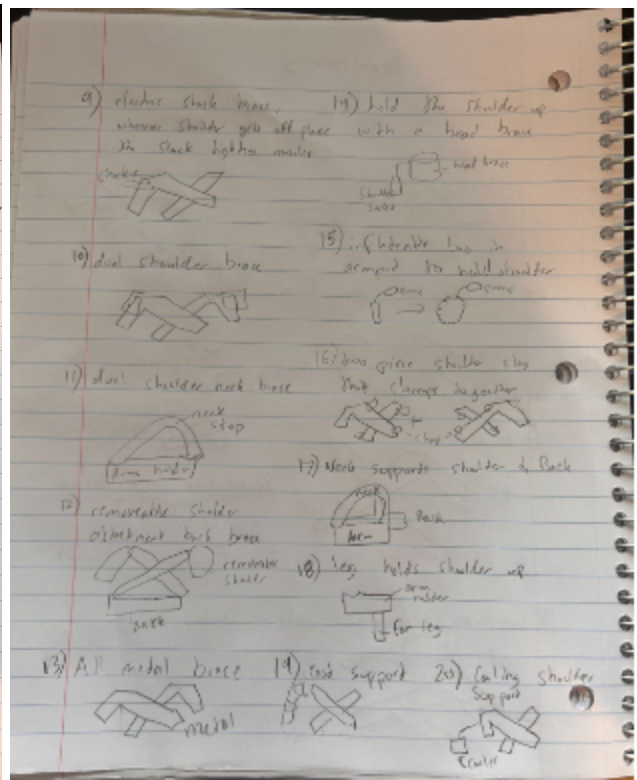 9) electric shock brace,
whenever shoulder gets off place
the shock tightens muscles
10) dual shoulder brace
11) dual shoulder neck brace
neck
stop
Arm holder
12) removeable sholder
attachment back brace
removable
sholder
13) All metal brace
metal
14) hold the shoulder up
with a head brace
head brace
15) inflateable bag in
armpit to hold shoulder
16) two piece shoulder
that clamps together
17) Neck supports shoulder & Back
neck
Back
Arm
18) leg holds shoulder up
arm
holder
For leg
19) support
20) Cooling shoulder
Support